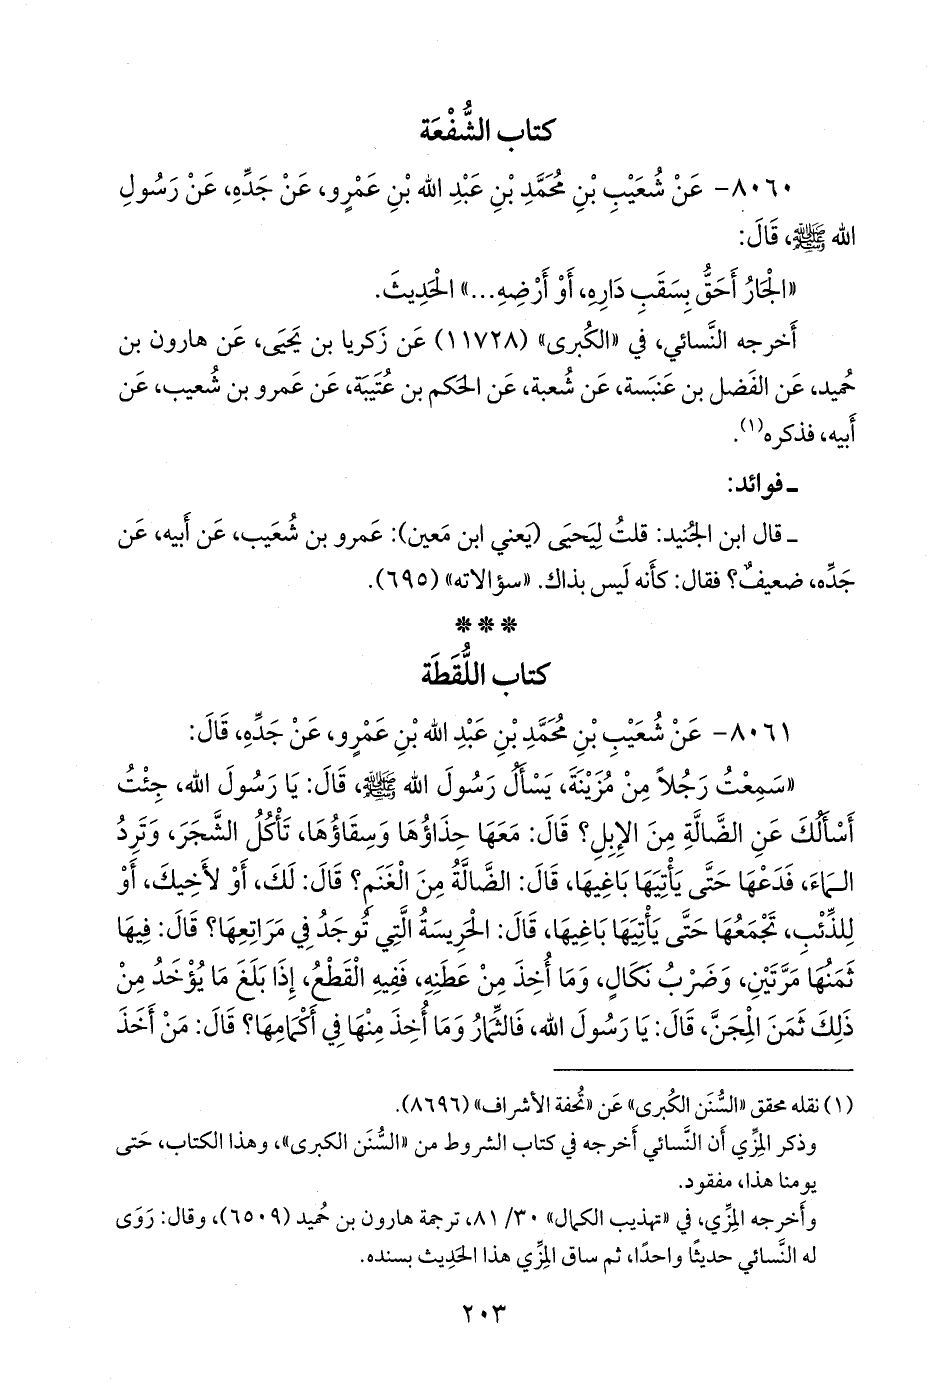 كتاب الشُّفْعَة
٨٠٦٠- عَنْ شُعَيْبِ بْنِ مُحَمَّدِ بْنِ عَبْدِ الله بْنِ عَمْرٍو، عَنْ جَدِّهِ، عَنْ رَسُولِ
الله ﷺ، قَالَ:
«الْجَارُ أَحَقُّ بِسَقَبِ دَارِهِ، أَوْ أَرْضِهِ...» الْحَدِيثَ.
أَخرجه النَّسائي، في «الكُبرى» (١١٧٢٨) عَن زَكريا بن يَحيَى، عَن هارون بن
حُميد، عَن الفَضل بن عَنبَسة، عَن شُعبة، عَن الحَكم بن عُتَيبَة، عَن عَمرو بن شُعيب، عَن
أَبيه، فذكره(١).
ـ فوائد:
ـ قال ابن الجُنيد: قلتُ لِيَحيَى (يَعني ابن مَعين): عَمرو بن شُعَيب، عَن أَبيه، عَن
جَدِّه، ضعيفٌ؟ فقال: كأَنه لَيس بذاك. «سؤالاته» (٦٩٥).
* * *
كتاب اللُّقَطَة
٨٠٦١- عَنْ شُعَيْبِ بْنِ مُحَمَّدِ بْنِ عَبْدِ الله بْنِ عَمْرٍو، عَنْ جَدِّهِ، قَالَ:
«سَمِعْتُ رَجُلاً مِنْ مُزَيْنَةَ، يَسْأَلُ رَسُولَ الله ﷺ، قَالَ: يَا رَسُولَ الله، جِئْتُ
أَسْأَلُكَ عَنِ الضَّالَّةِ مِنَ الإِبِلِ؟ قَالَ: مَعَهَا حِذَاؤُهَا وَسِقَاؤُهَا، تَأْكُلُ الشَّجَرَ، وَتَرِدُ
الـمَاءَ، فَدَعْهَا حَتَّى يَأْتِيَهَا بَاغِيهَا، قَالَ: الضَّالَّةُ مِنَ الْغَنَمِ؟ قَالَ: لَكَ، أَوْ لأَخِيكَ، أَوْ
لِلذِّئْبِ، تَجْمَعُهَا حَتَّى يَأْتِيَهَا بَاغِيهَا، قَالَ: الْحَرِيسَةُ الَّتِي تُوجَدُ فِي مَرَاتِعِهَا؟ قَالَ: فِيهَا
ثَمَنُهَا مَرَّتَيْنِ، وَضَرْبُ نَكَالٍ، وَمَا أُخِذَ مِنْ عَطَنِهِ، فَفِيهِ الْقَطْعُ، إِذَا بَلَغَ مَا يُؤْخَذُ مِنْ
ذَلِكَ ثَمَنَ الْمِجَنِّ، قَالَ: يَا رَسُولَ الله، فَالثِّمَارُ وَمَا أُخِذَ مِنْهَا فِي أَكْمَامِهَا؟ قَالَ: مَنْ أَخَذَ
(١) نقله محقق «السُّنَن الكُبرى» عَن «تُحفة الأشراف» (٨٦٩٦).
وذكر المِزِّي أَن النَّسائي أَخرجه في كتاب الشروط من «السُّنَن الكبرى»، وهذا الكتاب، حَتى
يومنا هذا، مفقود.
وأَخرجه المِزِّي، في «تهذيب الكمال» ٣٠/ ٨١، ترجمة هارون بن حُميد (٦٥٠٩)، وقال: رَوَى
له النَّسائي حديثًا واحدًا، ثم ساق المِزِّي هذا الحَديث بسنده.
٢٠٣